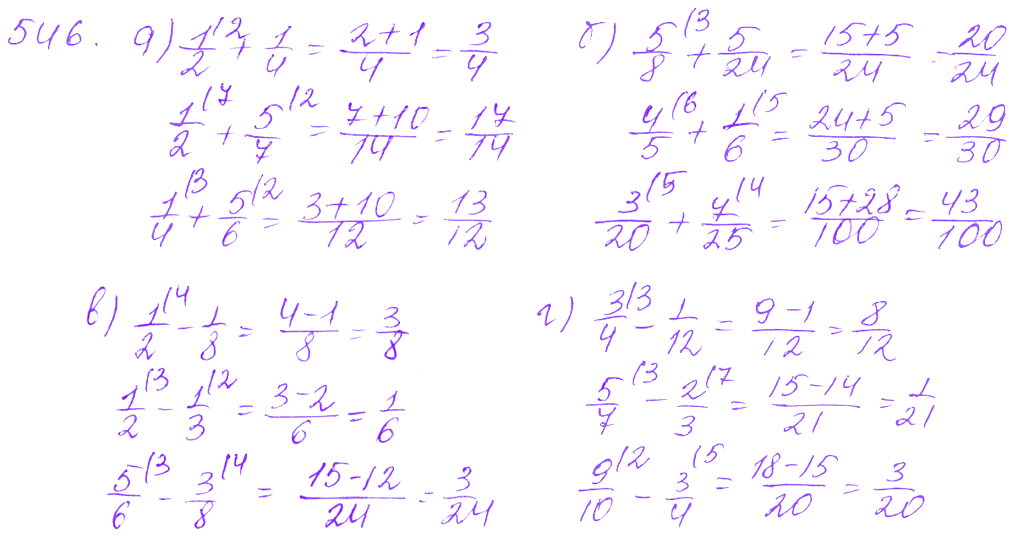 546. а) 1/2 (2 + 1/4 = (2+1)/4 = 3/4
1/2 (7 + 5/7 (2 = (7+10)/14 = 17/14
1/4 (3 + 5/6 (2 = (3+10)/12 = 13/12
б) 5/8 (3 + 5/24 = (15+5)/24 = 20/24
4/5 (6 + 1/6 (5 = (24+5)/30 = 29/30
3/20 (5 + 7/25 (4 = (15+28)/100 = 43/100
в) 1/2 (4 - 1/8 = (4-1)/8 = 3/8
1/2 (3 - 1/3 (2 = (3-2)/6 = 1/6
5/6 (3 - 3/8 (4 = (15-12)/24 = 3/24
г) 3/4 (3 - 1/12 = (9-1)/12 = 8/12
5/7 (3 - 2/3 (7 = (15-14)/21 = 1/21
9/10 (2 - 3/4 (5 = (18-15)/20 = 3/20